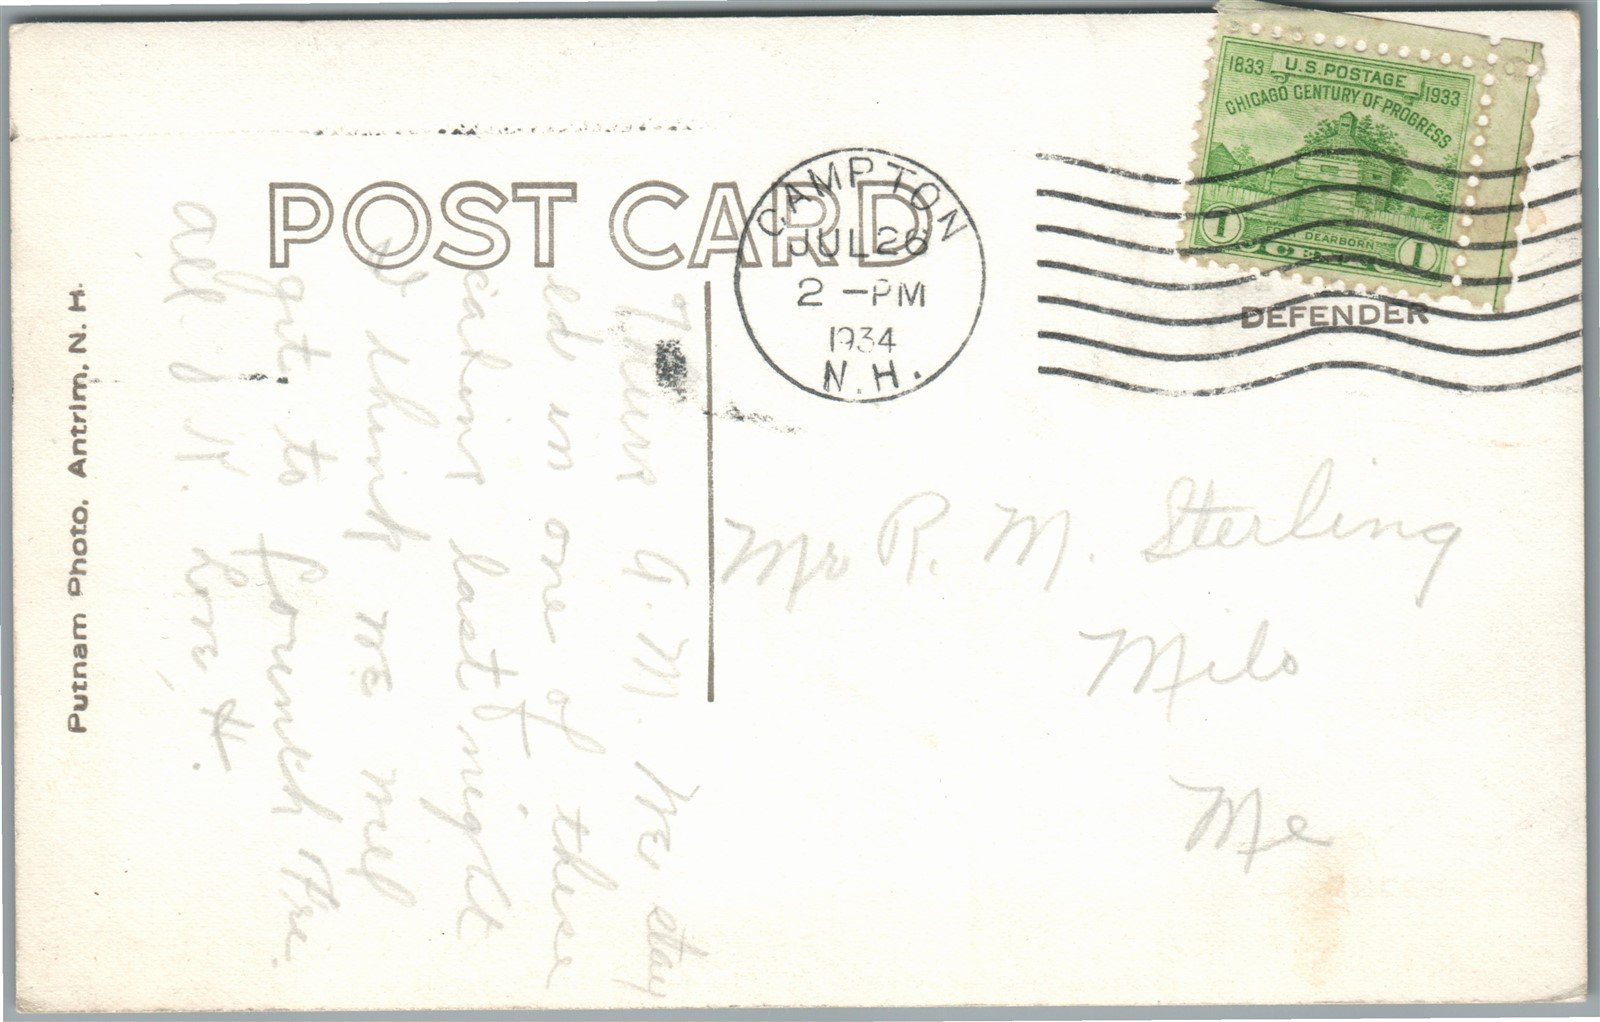 POST CARD
CAMPTON
JUL 26
2 - PM
1934
N.H.
1833 U.S. POSTAGE 1933
CHICAGO CENTURY OF PROGRESS
FORT DEARBORN
1 CENT 1
DEFENDER
Thurs A.M. We stay
ed in one of these
cabins last night
I think we will
get to French Fri.
all O.K. Love H.
Putnam Photo. Antrim, N. H.
Mr R. M. Sterling
Milo
Me